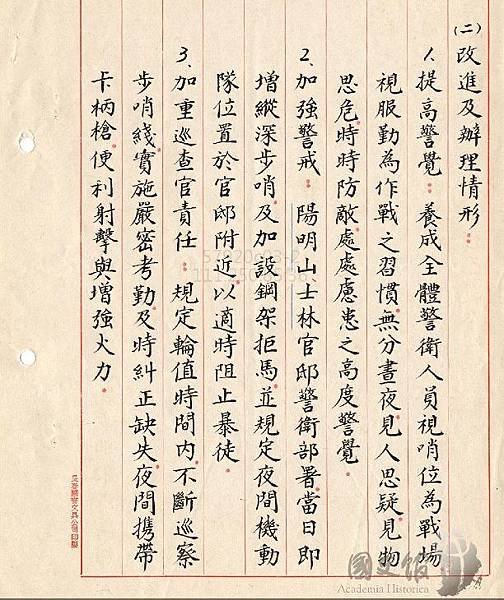 (二)改進及辦理情形：
1.提高警覺：養成全體警衛人員視哨位為戰場
視服勤為作戰之習慣。無分晝夜，見人思疑，見物
思危，時時防敵，處處慮患之高度警覺。
2.加強警戒：陽明山士林官邸警衛部署當日即
增縱深步哨，及加設鋼架拒馬，並規定夜間機動
隊位置於官邸附近，以適時阻止暴徒。
3.加重巡查官責任：規定輪值時間內，不斷巡察
步哨綫，實施嚴密考勤，及時糾正缺失，夜間携帶
卡柄槍，便利射擊與增強火力。
國史館
Academia Historica